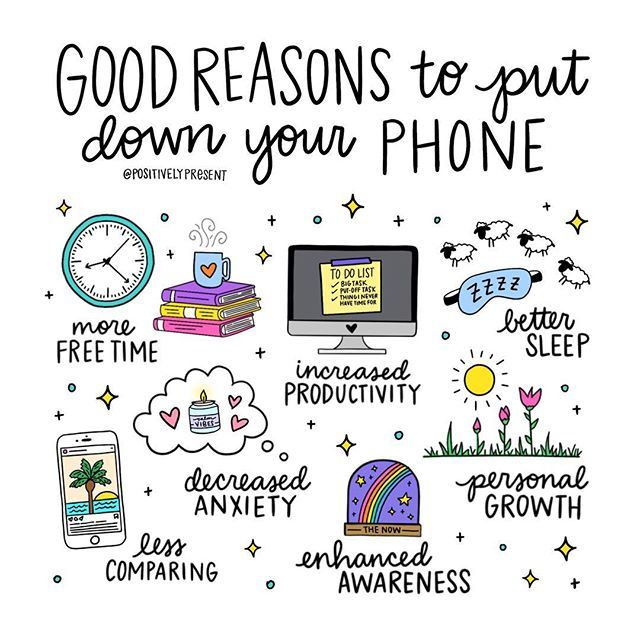 GOOD REASONS to put
down your PHONE
@POSITIVELYPRESENT
more
FREE TIME
TO DO LIST
BIG TASK
PUT-OFF TASK
THING I NEVER
HAVE TIME FOR
increased
PRODUCTIVITY
ZZZZ
better
SLEEP
calm
VIBES
decreased
ANXIETY
less
COMPARING
THE NOW
enhanced
AWARENESS
personal
GROWTH